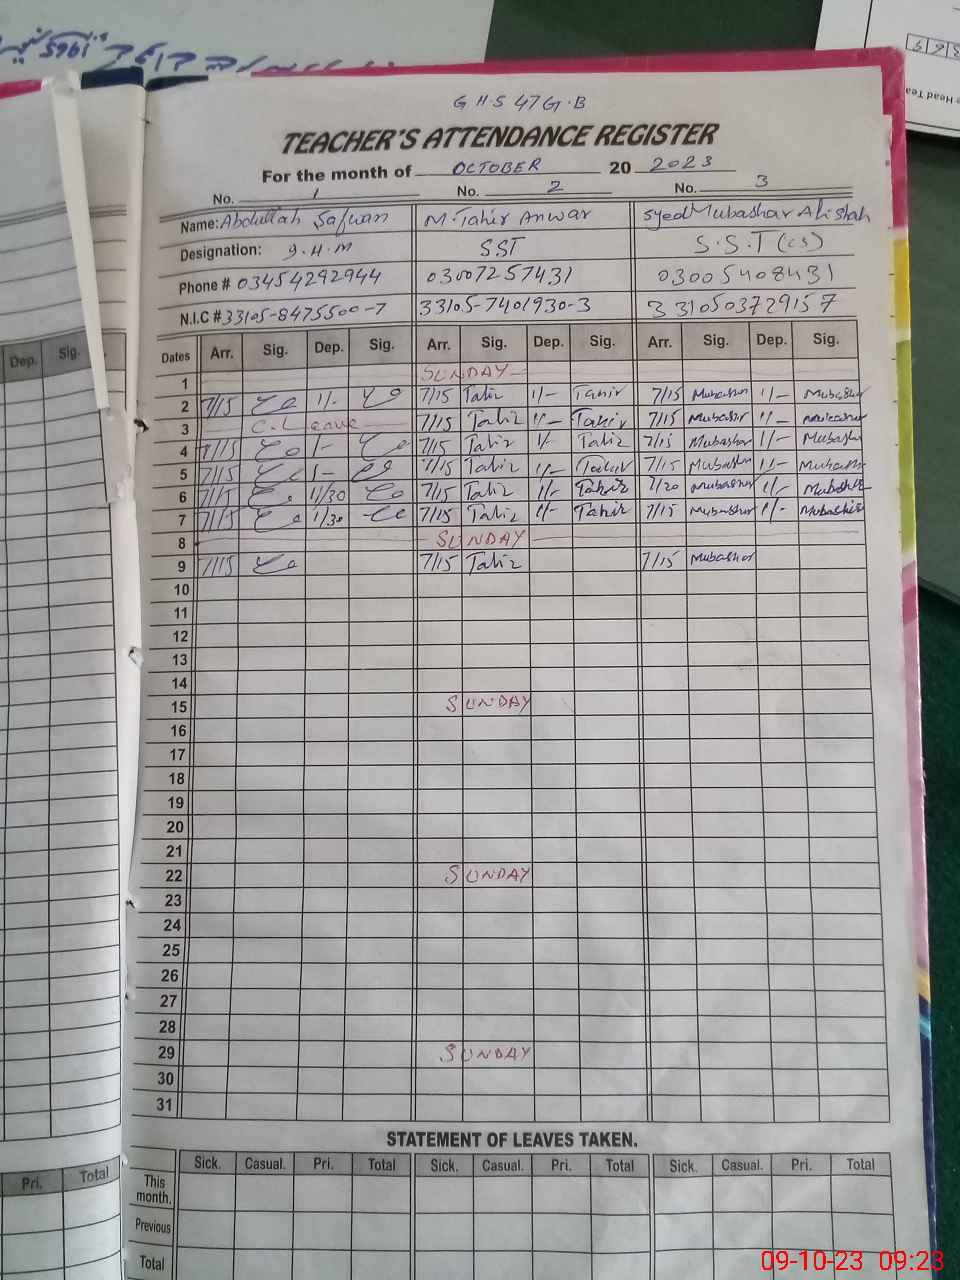 G H.S 47 G.B
TEACHER'S ATTENDANCE REGISTER
For the month of OCTOBER 20 2023
No. 1 No. 2 No. 3
Name: Abdullah Safwan M. Tahir Anwar Syed Mubashar Ali shah
Designation: S.H.M SST S.S.T (cs)
Phone # 03454292944 03007257431 03005408431
N.I.C # 33105-8475500-7 33105-7401930-3 3310503729157
Dep. Sig. Dates Arr. Sig. Dep. Sig. Arr. Sig. Dep. Sig. Arr. Sig. Dep. Sig.
1 SUNDAY
2 7/15 1/- 7/15 Tahir 1/- Tahir 7/15 Mubashar 1/- Mubashar
3 C.Leave 7/15 Tahir 1/- Tahir 7/15 Mubashar 1/- Mubashar
4 7/15 1- 7/15 Tahir 1/- Tahir 7/15 Mubashar 1/- Mubashar
5 7/15 1- 7/15 Tahir 1/- Tahir 7/15 Mubashar 1/- Mubashar
6 7/15 11/30 7/15 Tahir 1/- Tahir 7/20 Mubashar 1/- Mubashar
7 7/15 1/30 7/15 Tahir 1/- Tahir 7/15 Mubashar 1/- Mubashar
8 SUNDAY
9 7/15 7/15 Tahir 7/15 Mubashar
10
11
12
13
14
15 SUNDAY
16
17
18
19
20
21
22 SUNDAY
23
24
25
26
27
28
29 SUNDAY
30
31
STATEMENT OF LEAVES TAKEN.
Pri. Total Sick. Casual. Pri. Total Sick. Casual. Pri. Total Sick. Casual. Pri. Total
This month.
Previous
Total
09-10-23 09:23